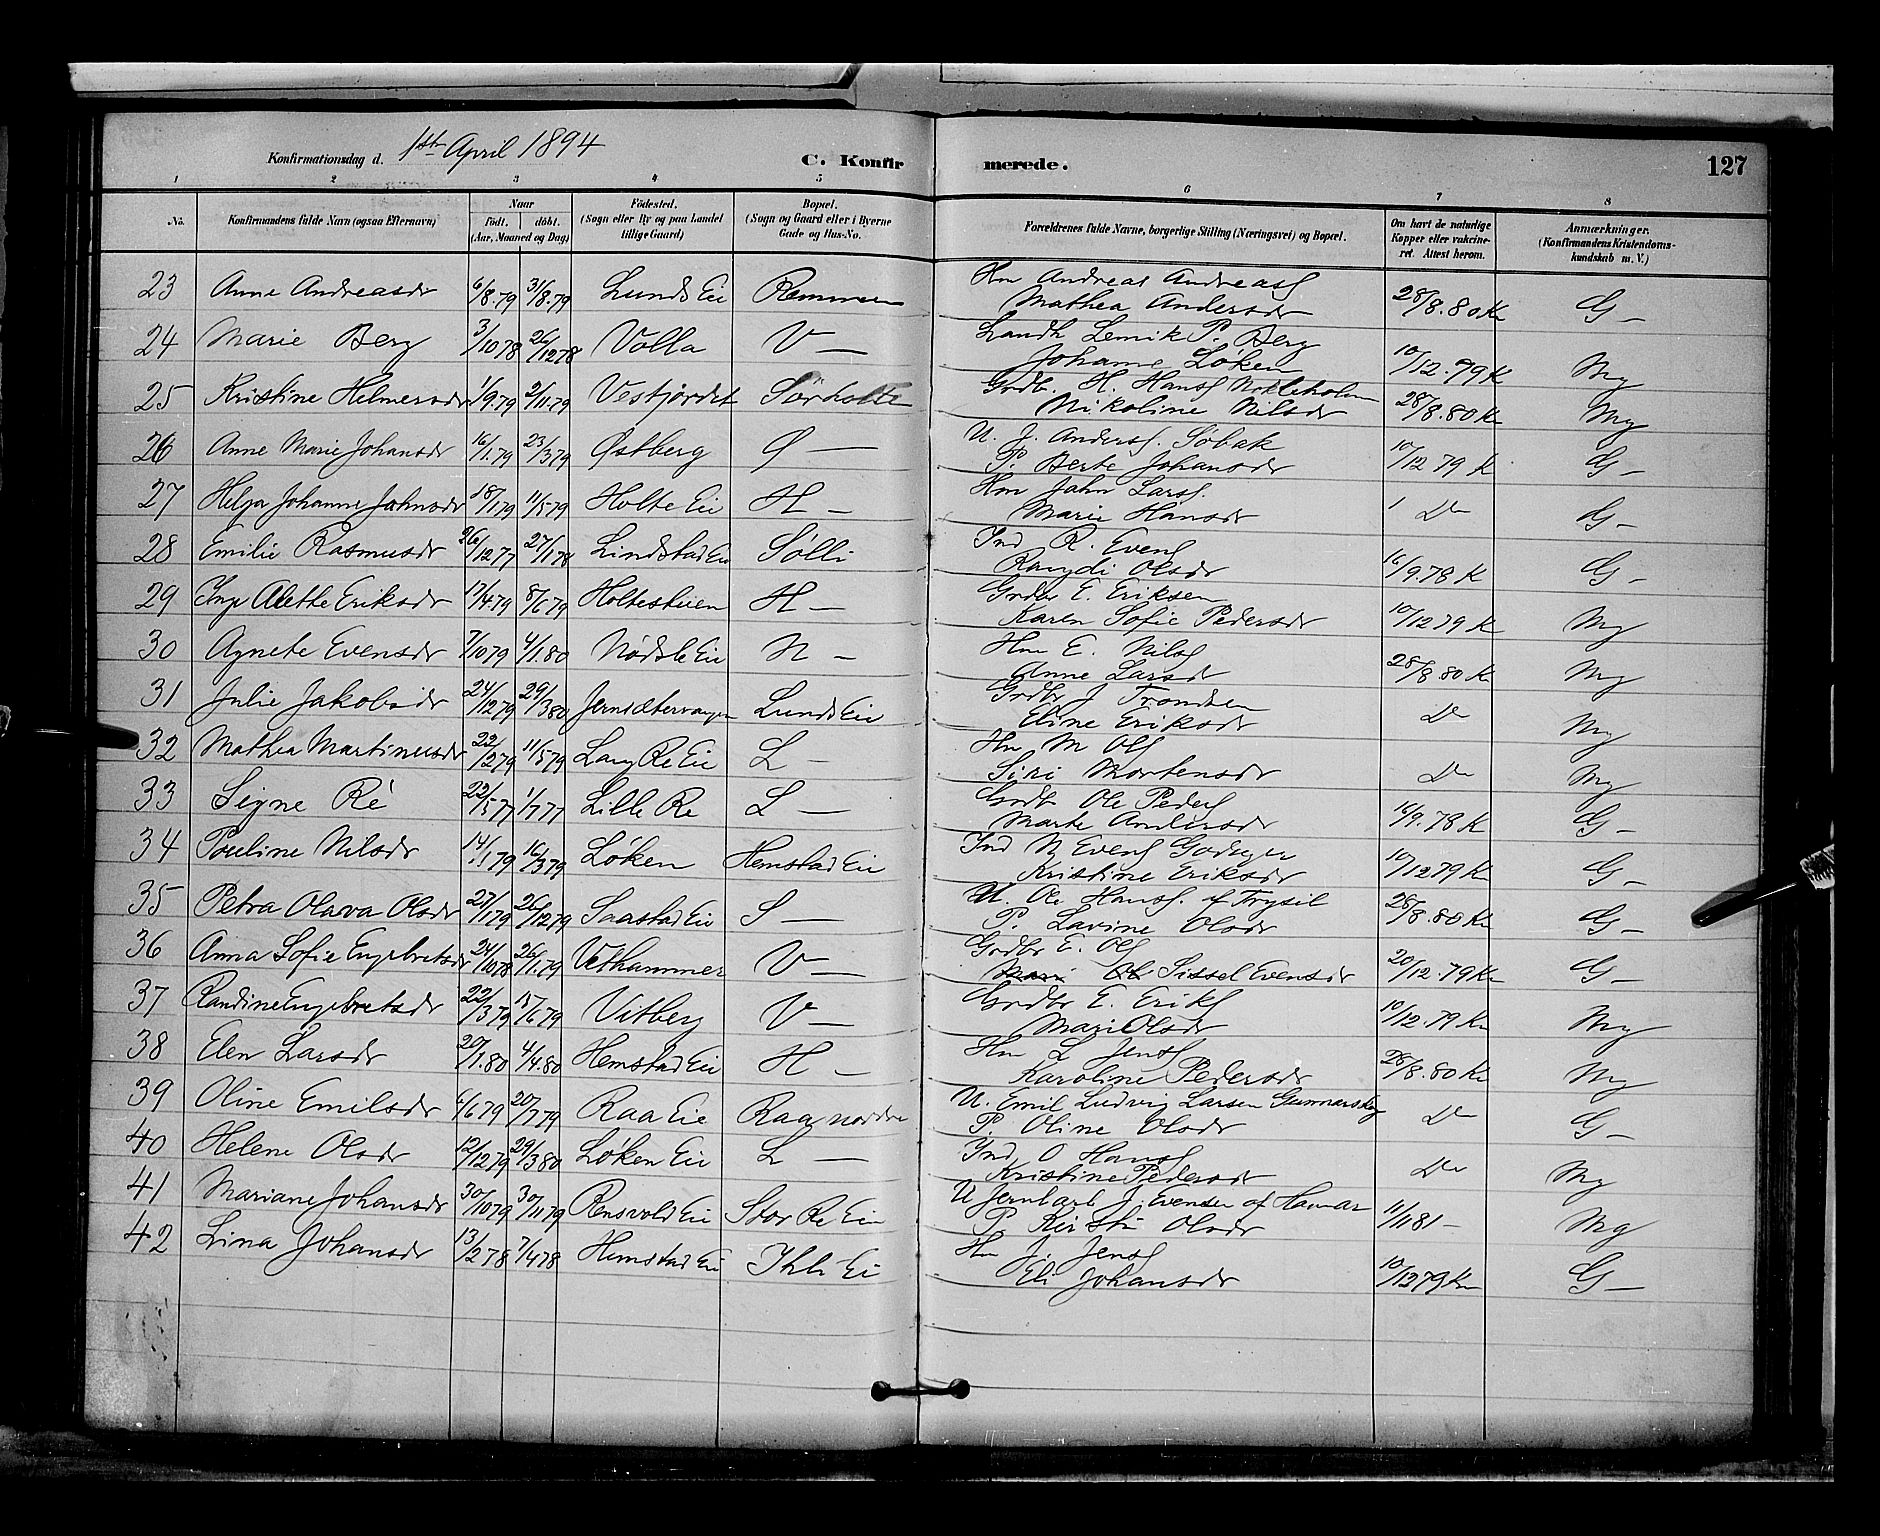 Konfirmationsdag d. 1ste April 1894 C. Konfirmerede. 127
1 2 3 4 5 6 7 8
No. Konfirmandens fulde Navn (ogsaa Efternavn) Naar født. døbt. (Aar, Maaned og Dag) Fødested. (Sogn eller By og paa Landet tillige Gaard) Bopæl. (Sogn og Gaard eller i Byerne Gade og Hus-No. Forældrenes fulde Navne, borgerlige Stilling (Næringsvei) og Bopæl. Om havt de naturlige Kopper eller vakcineret. Attest herom. Anmærkninger. (Konfirmandens Kristendomskundskab m. V.)
23 Anne Andreasdr 6/8.79 31/8.79 Lunds Eie Remmen Hm Andreas Andreass
Mathea Andersdr 28/8.80 K G –
24 Marie Berg 3/10 78 26/12 78 Volla V – Landh Lemik P. Berg
Johanne Løken 10/12.79 K Mg
25 Kristine Helmersdr 1/9.79 2/11.79 Vestjordet Sörholte Grdbr. H. Hanss Mokleholm
Nikoline Nilsdr 28/8.80 K Mg
26 Anne Marie Johansdr 16/1.79 23/3 79 Østberg Ø – U. J. Anderss. Söbak
P. Berte Johansdr 10/12 79 K. G –
27 Helga Johanne Jahnsdr 18/1 79 11/5 79 Holte Eie H – Hm Jahn Larss.
Marie Hansdr Do G –
28 Emilie Rasmusdr 26/12 77 27/1 78 Lindstad Eie Sølli Ind R. Evens
Rangdi Olsdr 16/9.78 K G –
29 Inga Alethe Eriksdr 17/4 79 8/6 79 Holtesteien H – Grdbr E. Eriksen
Karen Sofie Pedersdr 10/12 79 K Mg
30 Agnete Evensdr 7/10 79 4/1.80 Nødsle Eie N – Hm E. Nils
Anne Larsdr 28/8 80 K Mg
31 Julie Jakobsdr 24/12 79 29/3 80 Jernsætervangen Lunds Eie Grdbr J Trondsen
Eline Eriksdr Do Mg
32 Mathea Martinusdr 22/2 79 11/5 79 Lang Re Eie L – Hm M Ols
Siri Mortensdr Do Mg
33 Signe Ré 22/5 77 1/7 77 Lille Re L – Grdbr Ole Peders
Marte Andersdr 16/9.78 K G –
34 Pouline Nilsdr 14/1.79 16/3 79 Løken Hemstad Eie Ind N Evens
Kristine Eriksdr 10/12 79 K G –
35 Petra Olava Olsdr 27/1 79 26/12 79 Saastad Eie S – U. Ole Hanss. af Trysil
P. Lavine Olsdr 28/8.80 K G –
36 Anna Sofie Engebretsdr 24/10 78 26/1.79 Vethammer V – Grdbr E. Ols
Mari Ols Sissel Evensdr 20/12.79 K G –
37 Randine Engebretsdr 22/3 79 15/6 79 Vitberg V – Grdbr E. Eriks
Mari Olsdr 10/12.79 K Mg
38 Elen Larsdr 20/1.80 4/4.80 Hemstad Eie H – Hm L Jens
Karoline Pedersdr 28/8.80 K Mg
39 Oline Emilsdr 6/6 79 20/7 79 Raa Eie Raa nordre U. Emil Ludvig Larsen Gunnarskog
P. Oline Olsdr Do G –
40 Helene Olsdr 12/12 79 29/3 80 Løken Eie L – Ind O Hans
Kristine Pedersdr Do Mg
41 Mariane Johansdr 30/10 79 30/11 79 Rensvold Eie Stor Re Eie U Jernbarb J. Evensen af Hamar
P. Kirsti Olsdr 11/1 81 – Mg
42 Lina Johansdr 13/2 78 7/4 78 Hemstad Eie Ihle Ei Hm J. Jens
Eli Johansdr 10/12 79 K G –